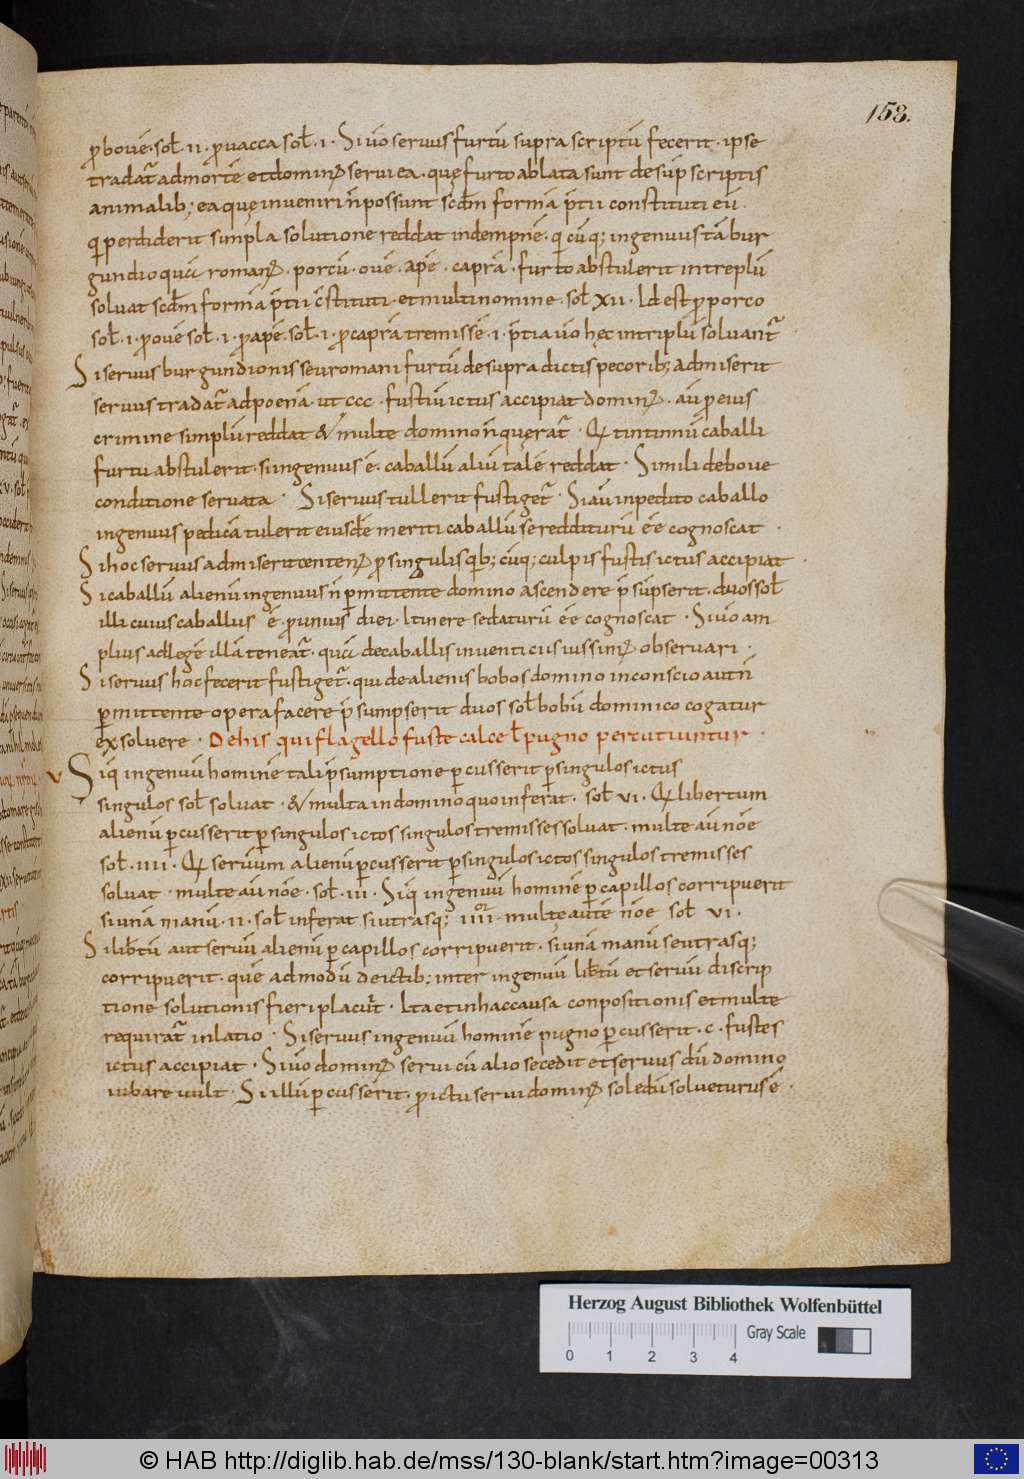 153.
ꝓ bovē · sol̄ · ii · ꝓ vacca sol̄ · i · Si v̄o servus furtū supra scriptū fecerit · ipse
tradat̄ ad mortē et domin᷒ servi ea · quę furto ablata sunt de sup̄ scriptis
animalib; ea quę inveniri n̄ possunt scd̄m formā p̄tii constituti eū ·
qi perdiderit simpla solutione reddat indempnē · qi cūq; ingenuus tā bur
gundio quā roman᷒ · porcū · ovē · apē · caprā · furto abstulerit in treplū
solvat scd̄m formā p̄tii c̄stituti · et multi nomine · sol̄ xii · Id est ꝓ porco
sol̄ · i · ꝓ ovē sol̄ · i · ꝓ apē · sol̄ · i · ꝓ caprā tremissē · i · p̄tia v̄o hęc in triplū solvant̄
Si servus burgundionis seu romani furtū de supra dictis pecorib; admiserit
servus tradat̄ ad poenā · ut ccc · fustiū ictus accipiat domin᷒ · aū ꝓ eius
crimine simplū reddat & multe domino n̄ quęrat̄ · Qi tintinnū caballi
furtu abstulerit · si ingenuus ē · caballū aliū talē reddat · Simili de bove
conditione servata · Si servus tullerit fustiget̄ · Si aū inpedito caballo
ingenuus pedicā tulerit eiusdē meriti caballū se redditurū eē cognoscat ·
Si hoc servus admiserit centen᷒ ꝓ singulis qib; cūq; culpis fustis ictus accipiat ·
Si caballū alienū ingenuus n̄ ꝑmittente domino ascendere p̄sūpserit · duos sol̄
illi cuius caballus ē · ꝓ unius diei · Itinere se daturū eē cognoscat · Si v̄o am
plius ad legē illā teneat̄ · quā de caballis inventiciis iussim᷒ observari ·
Si servus hoc fecerit fustiget̄ · qui de alienis bobos domino inconscio aut n̄
ꝑmittente opera facere p̄sumpserit duos sol̄ bobū dominico cogatur
exsolvere · De his qui flagello fuste calce ł pugno percutiuntur ·
v Siq̄ ingenuū hominē tali p̄sumptione ꝑcusserit ꝑ singulos ictus
singulos sol̄ solvat · & multa in domino quo inferat · sol̄ vi · Qi libertum
alienū ꝑcusserit ꝑ singulos ictos singulos tremisses solvat · multe aū nōe
sol̄ · iiii · Qi servum alienū ꝑcusserit ꝑ singulos ictos singulos tremisses
solvat · multe aū nōe · sol̄ · iii · Siq̄ ingenuū hominē ꝑ capillos corripuerit
si unā manū · ii · sol̄ inferat si utrasq; iiii or · multę autē nōe sol̄ vi ·
Si lib̄tū aut servū alienū ꝑ capillos corripuerit · si unā manū seu utrasq;
corripuerit · quē ad modū de ictib; inter ingenuū lib̄tū et servū discrip
tione solutionis fieri placuit̄ · Ita et in hac causa conpositionis et multe
requirat̄ inlatio · Si servus ingenuū hominē pugno ꝑcusserit · c · fustes
ictus accipiat · Si v̄o domin᷒ servi cū alio secedit et servus dū domino
iubare vult · Si illū ꝑcusserit · ꝓ ictu servi domin᷒ soledū solveturus ē ·
Herzog August Bibliothek Wolfenbüttel
Gray Scale
0 1 2 3 4
© HAB http://diglib.hab.de/mss/130-blank/start.htm?image=00313